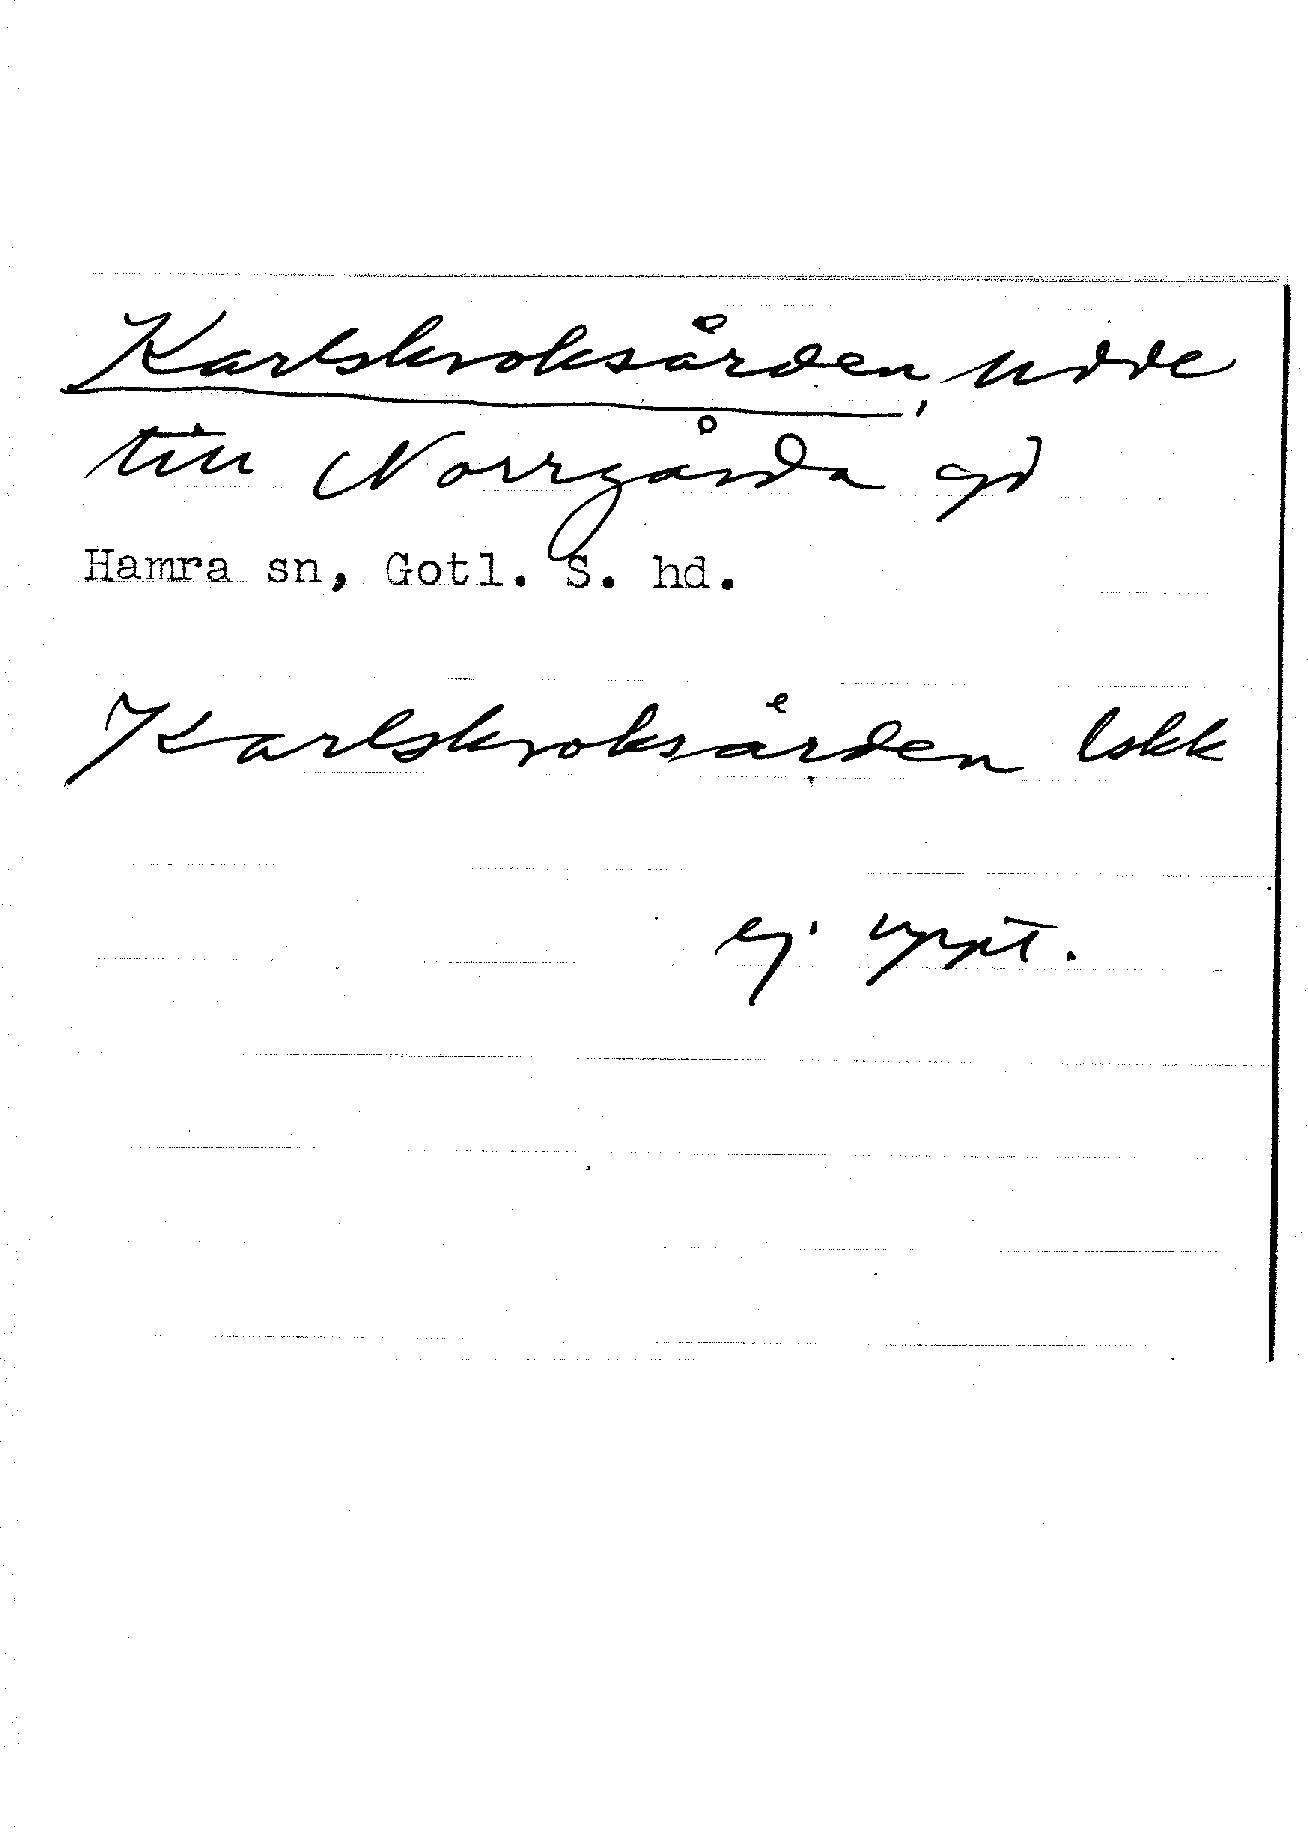 Karlskroksården, udde
till Norrgårda gd
Hamra sn, Gotl. S. hd.
Karlskroksården Eskk
ej uppt.